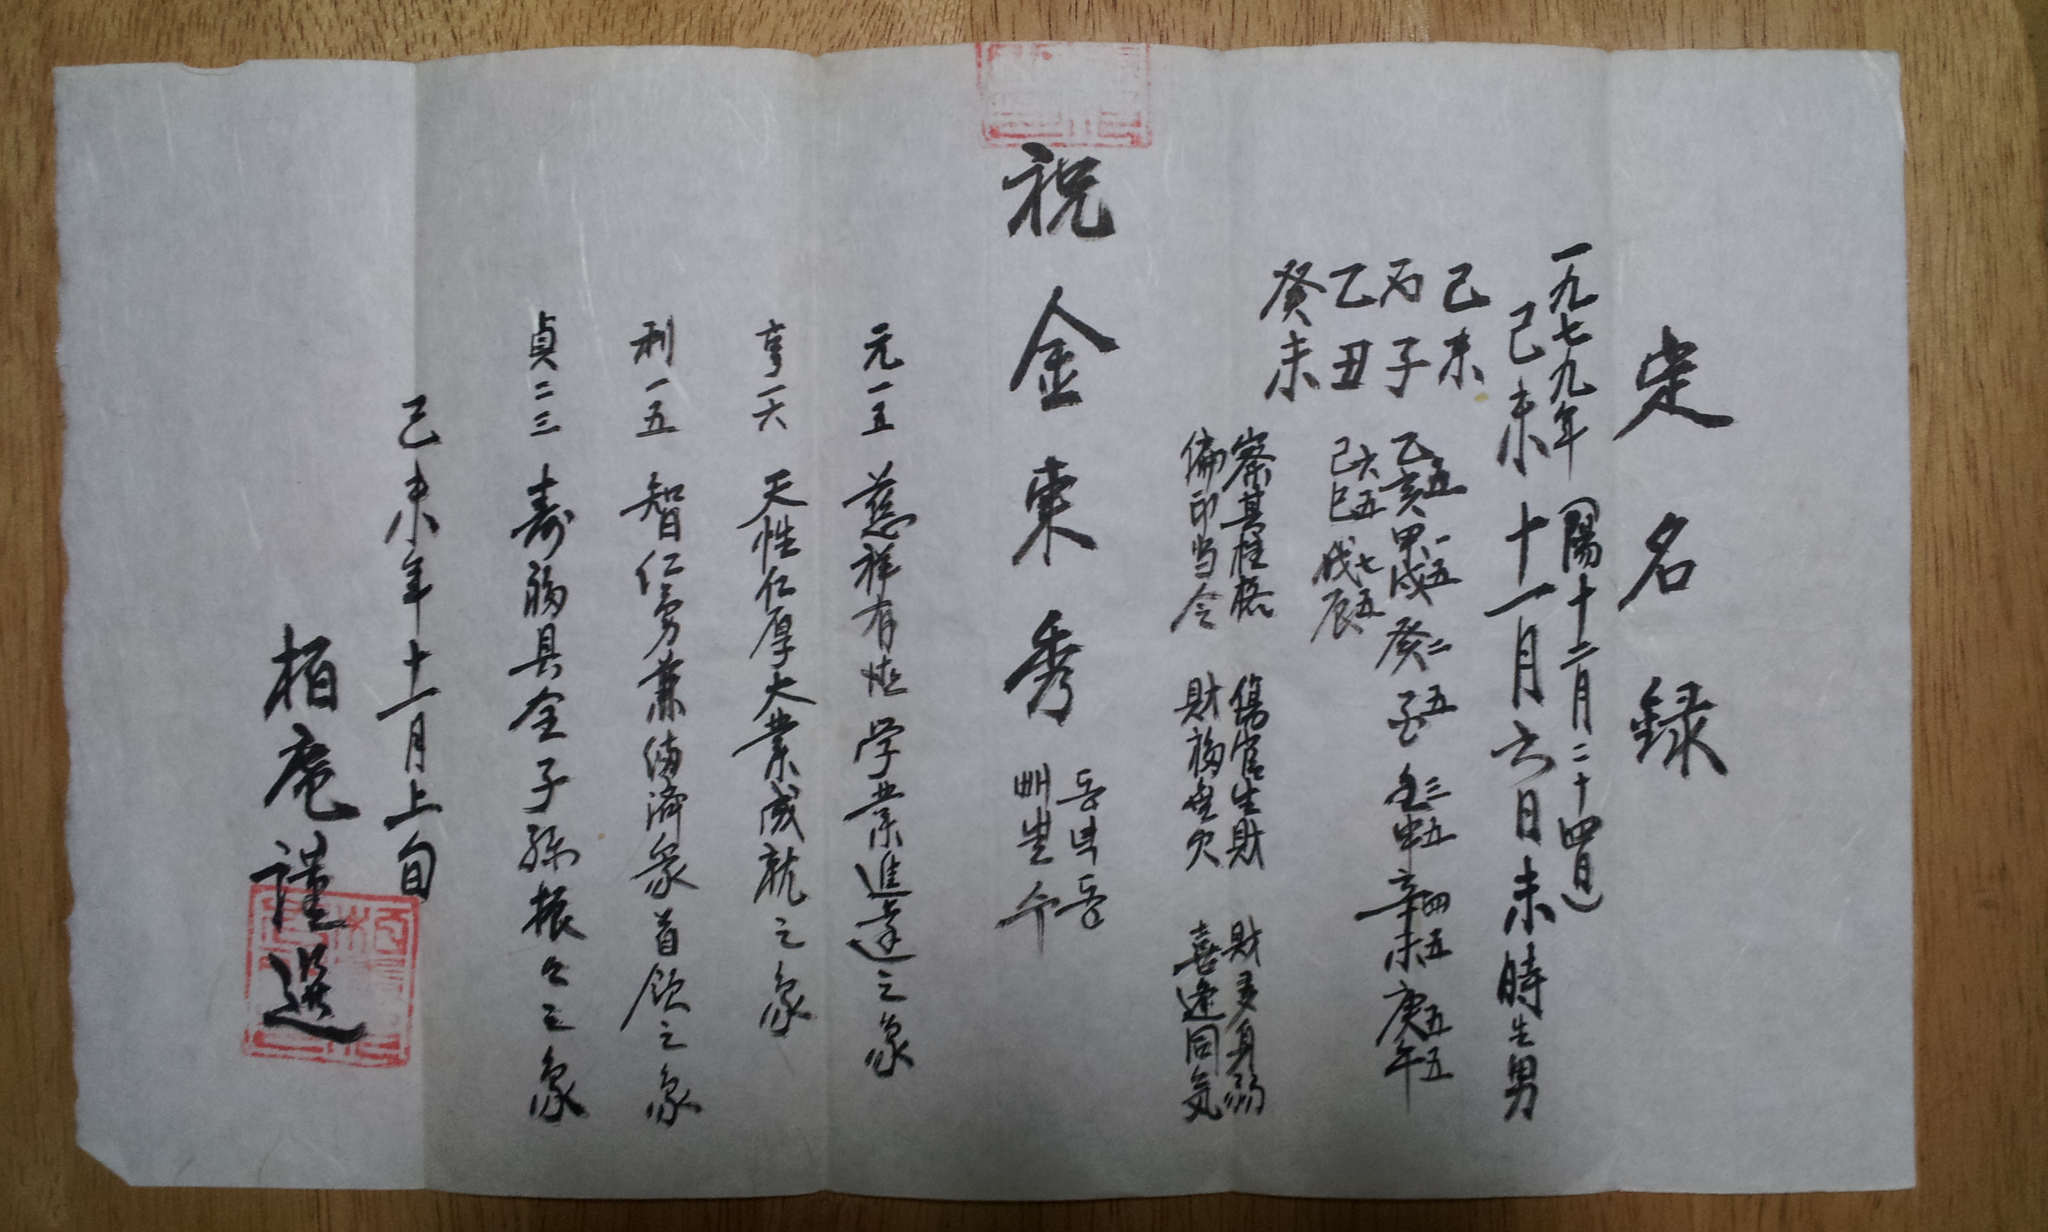 定名録
一九七九年(陽十二月二十四日)
己未十一月六日未時生男
己未
丙子
乙丑
癸未
五 一五 二五 三五 四五 五五
乙亥 甲戌 癸酉 壬申 辛未 庚午
六五 七五
己巳 戊辰
察其柱格 傷官生財 財多身弱
偏印当令 財福無欠 喜逢同気
祝金東秀
동녁동
빼날수
元一五 慈祥有徳 学業進達之象
亨一六 天性仁厚大業成就之象
利一五 智仁勇兼備済衆首領之象
貞二三 寿福具全子孫振々之象
己未年十一月上旬
栢庵謹選